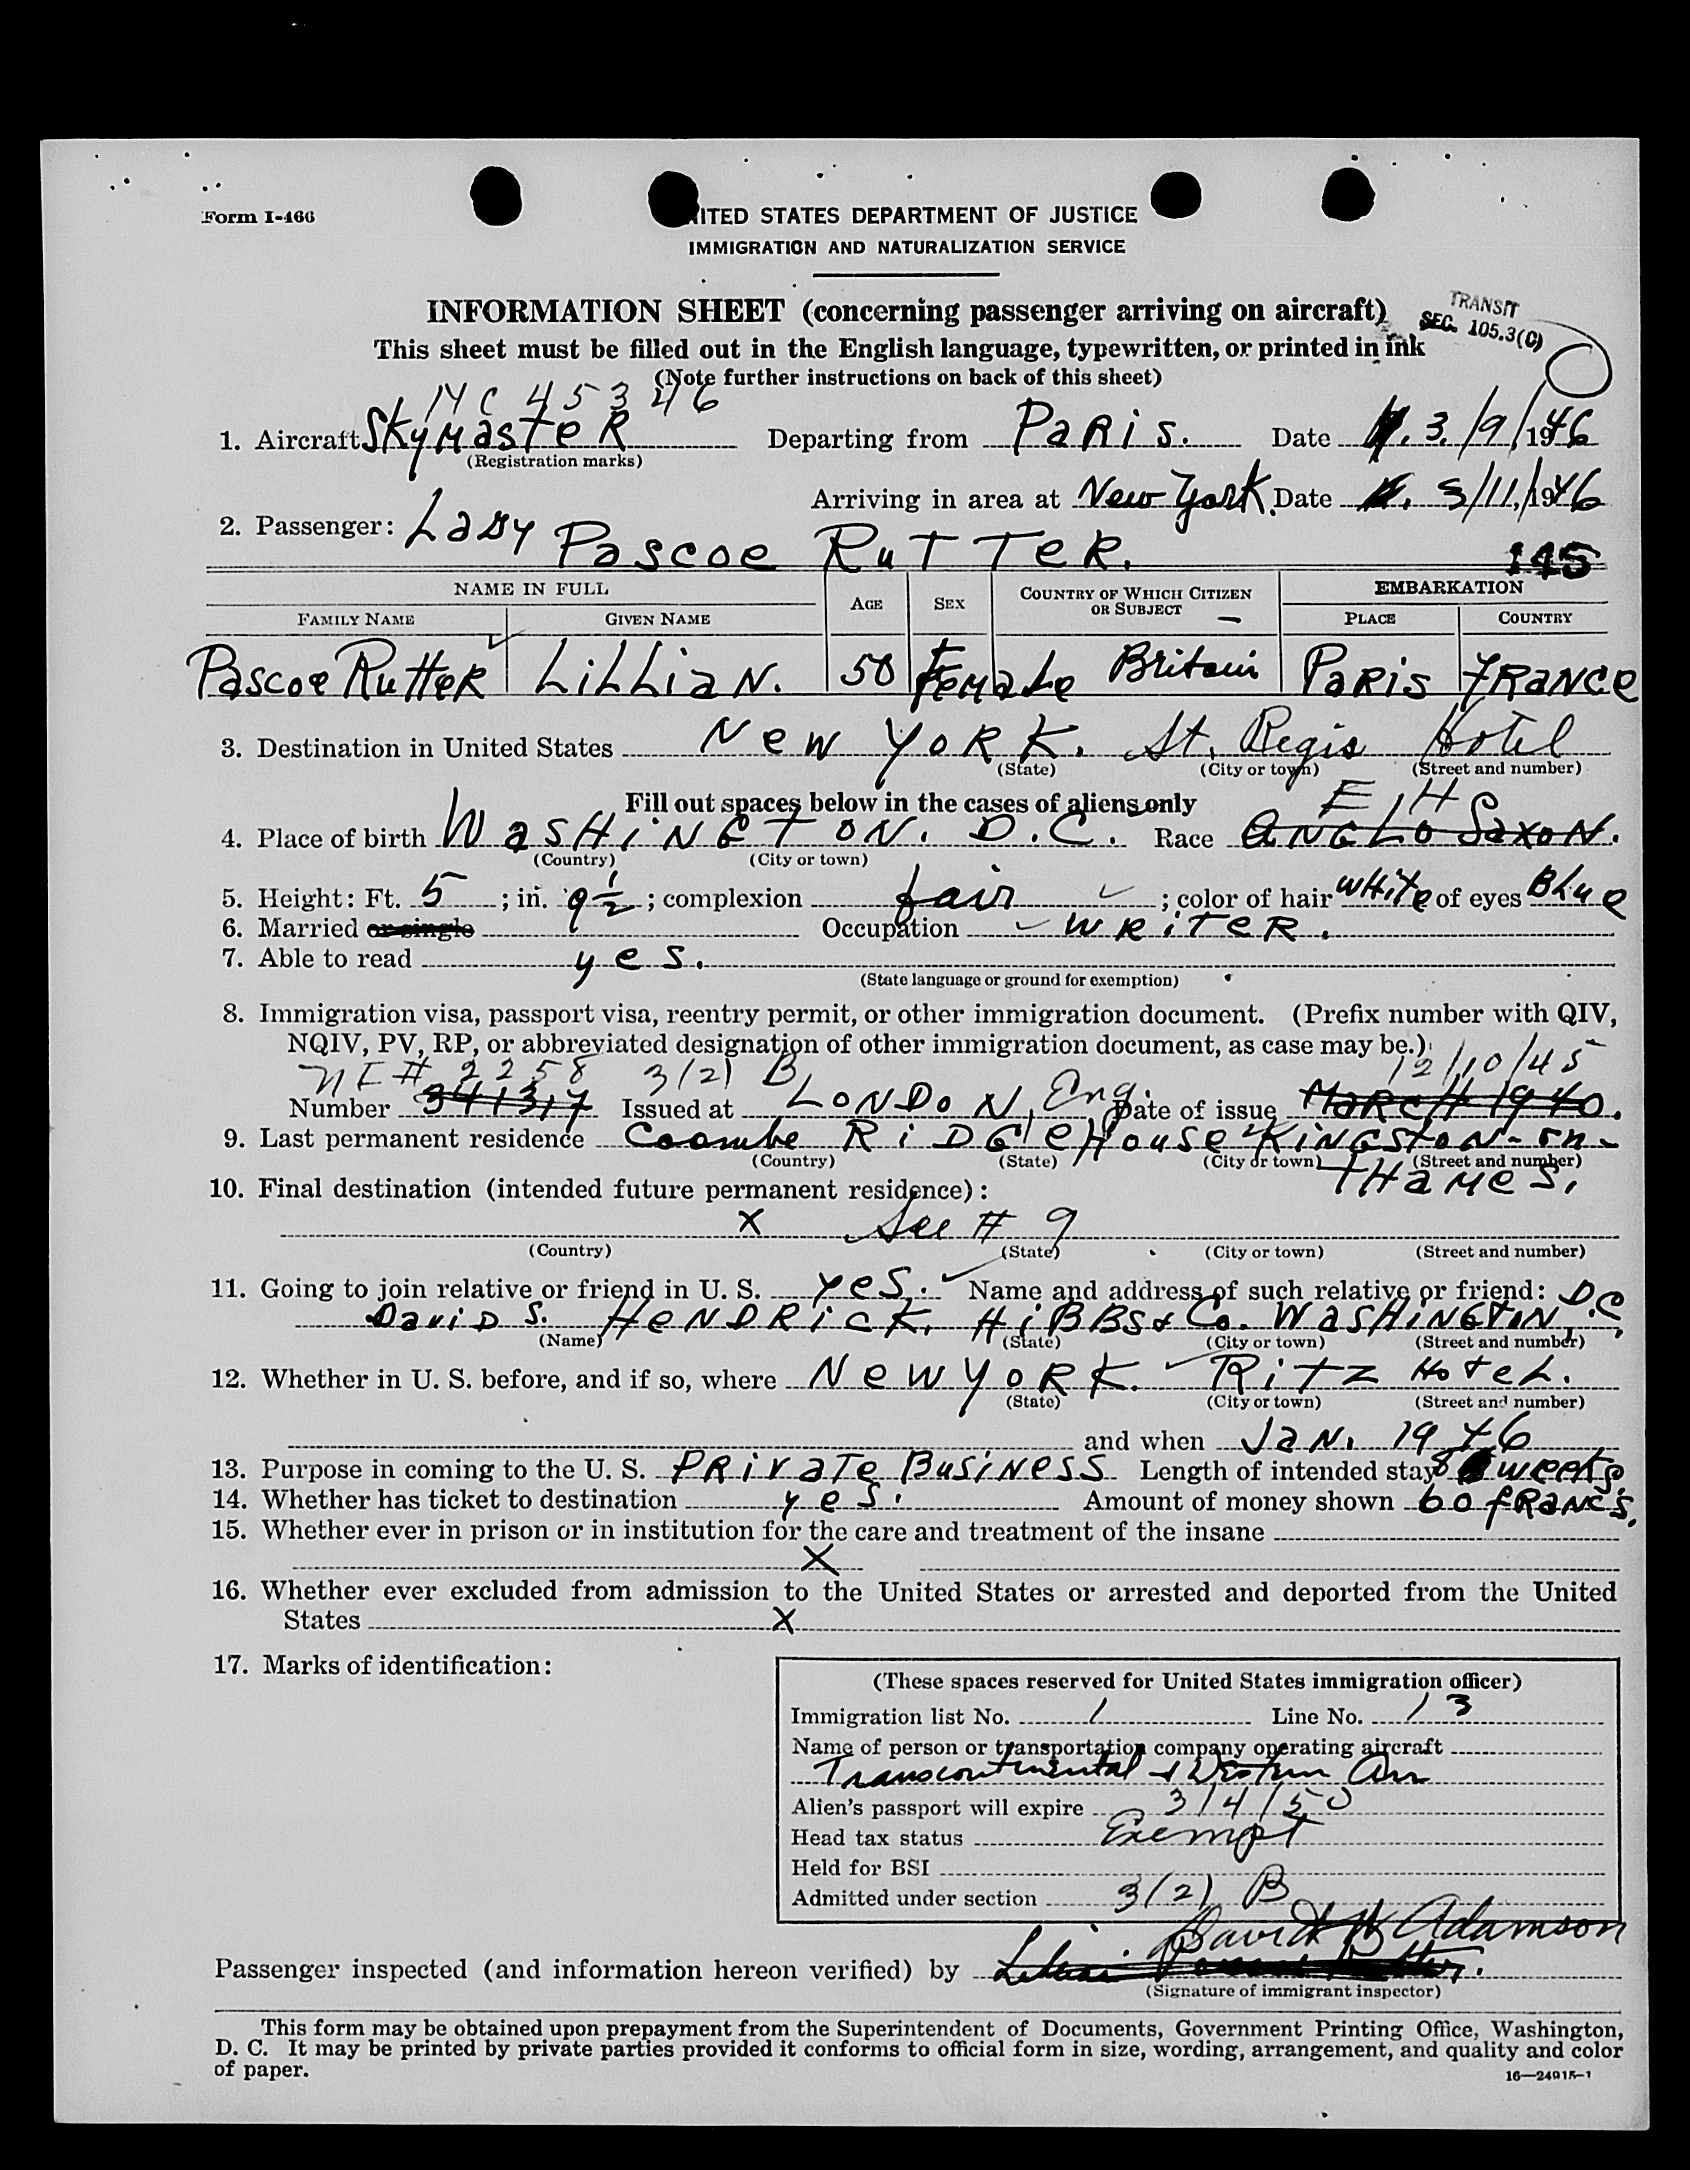 Form I-466
UNITED STATES DEPARTMENT OF JUSTICE
IMMIGRATION AND NATURALIZATION SERVICE
INFORMATION SHEET (concerning passenger arriving on aircraft)
TRANSIT
SEC. 105.3(C)
This sheet must be filled out in the English language, typewritten, or printed in ink
(Note further instructions on back of this sheet)
NC 45346
1. Aircraft Skymaster Departing from Paris. Date 3/9/1946
(Registration marks)
Arriving in area at New York. Date 3/11/1946
2. Passenger: Lady Pascoe Rutter.
145
NAME IN FULL AGE SEX COUNTRY OF WHICH CITIZEN OR SUBJECT EMBARKATION
FAMILY NAME GIVEN NAME PLACE COUNTRY
Pascoe Rutter Lillian. 50 Female Britain Paris France
3. Destination in United States New York. St. Regis Hotel
(State) (City or town) (Street and number)
Fill out spaces below in the cases of aliens only
4. Place of birth Washington. D.C. Race Anglo Saxon.
(Country) (City or town)
5. Height: Ft. 5; in. 9 1/2; complexion fair; color of hair White of eyes Blue
6. Married or single Occupation Writer.
7. Able to read yes.
(State language or ground for exemption)
8. Immigration visa, passport visa, reentry permit, or other immigration document. (Prefix number with QIV,
NQIV, PV, RP, or abbreviated designation of other immigration document, as case may be.)
# 2258 3(2) B 12/10/45
Number 341317 Issued at London, Eng. Date of issue March 1940.
9. Last permanent residence Coombe Ridge House Kingston-on-
(Country) (State) (City or town) (Street and number)
Thames.
10. Final destination (intended future permanent residence):
X See # 9
(Country) (State) (City or town) (Street and number)
11. Going to join relative or friend in U. S. yes. Name and address of such relative or friend: D.C
David S. Hendrick. Hibbs & Co. Washington,
(Name) (State) (City or town) (Street and number)
12. Whether in U. S. before, and if so, where New York. Ritz Hotel.
(State) (City or town) (Street and number)
and when Jan. 1946
13. Purpose in coming to the U. S. Private Business Length of intended stay 8 weeks.
14. Whether has ticket to destination yes. Amount of money shown 60 francs.
15. Whether ever in prison or in institution for the care and treatment of the insane
X
16. Whether ever excluded from admission to the United States or arrested and deported from the United
States X
17. Marks of identification:
(These spaces reserved for United States immigration officer)
Immigration list No. 1 Line No. 13
Name of person or transportation company operating aircraft
Transcontinental & Western Air
Alien's passport will expire 3/4/50
Head tax status Exempt
Held for BSI
Admitted under section 3(2) B
David Adamson
Passenger inspected (and information hereon verified) by
(Signature of immigrant inspector)
This form may be obtained upon prepayment from the Superintendent of Documents, Government Printing Office, Washington,
D. C. It may be printed by private parties provided it conforms to official form in size, wording, arrangement, and quality and color
of paper.
16—24915-1